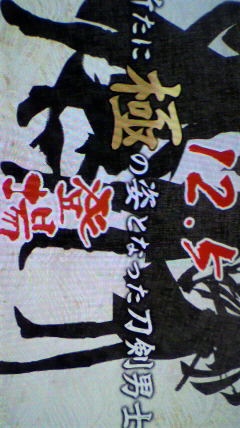 12.5
新たに極の姿となった刀剣男士
登場